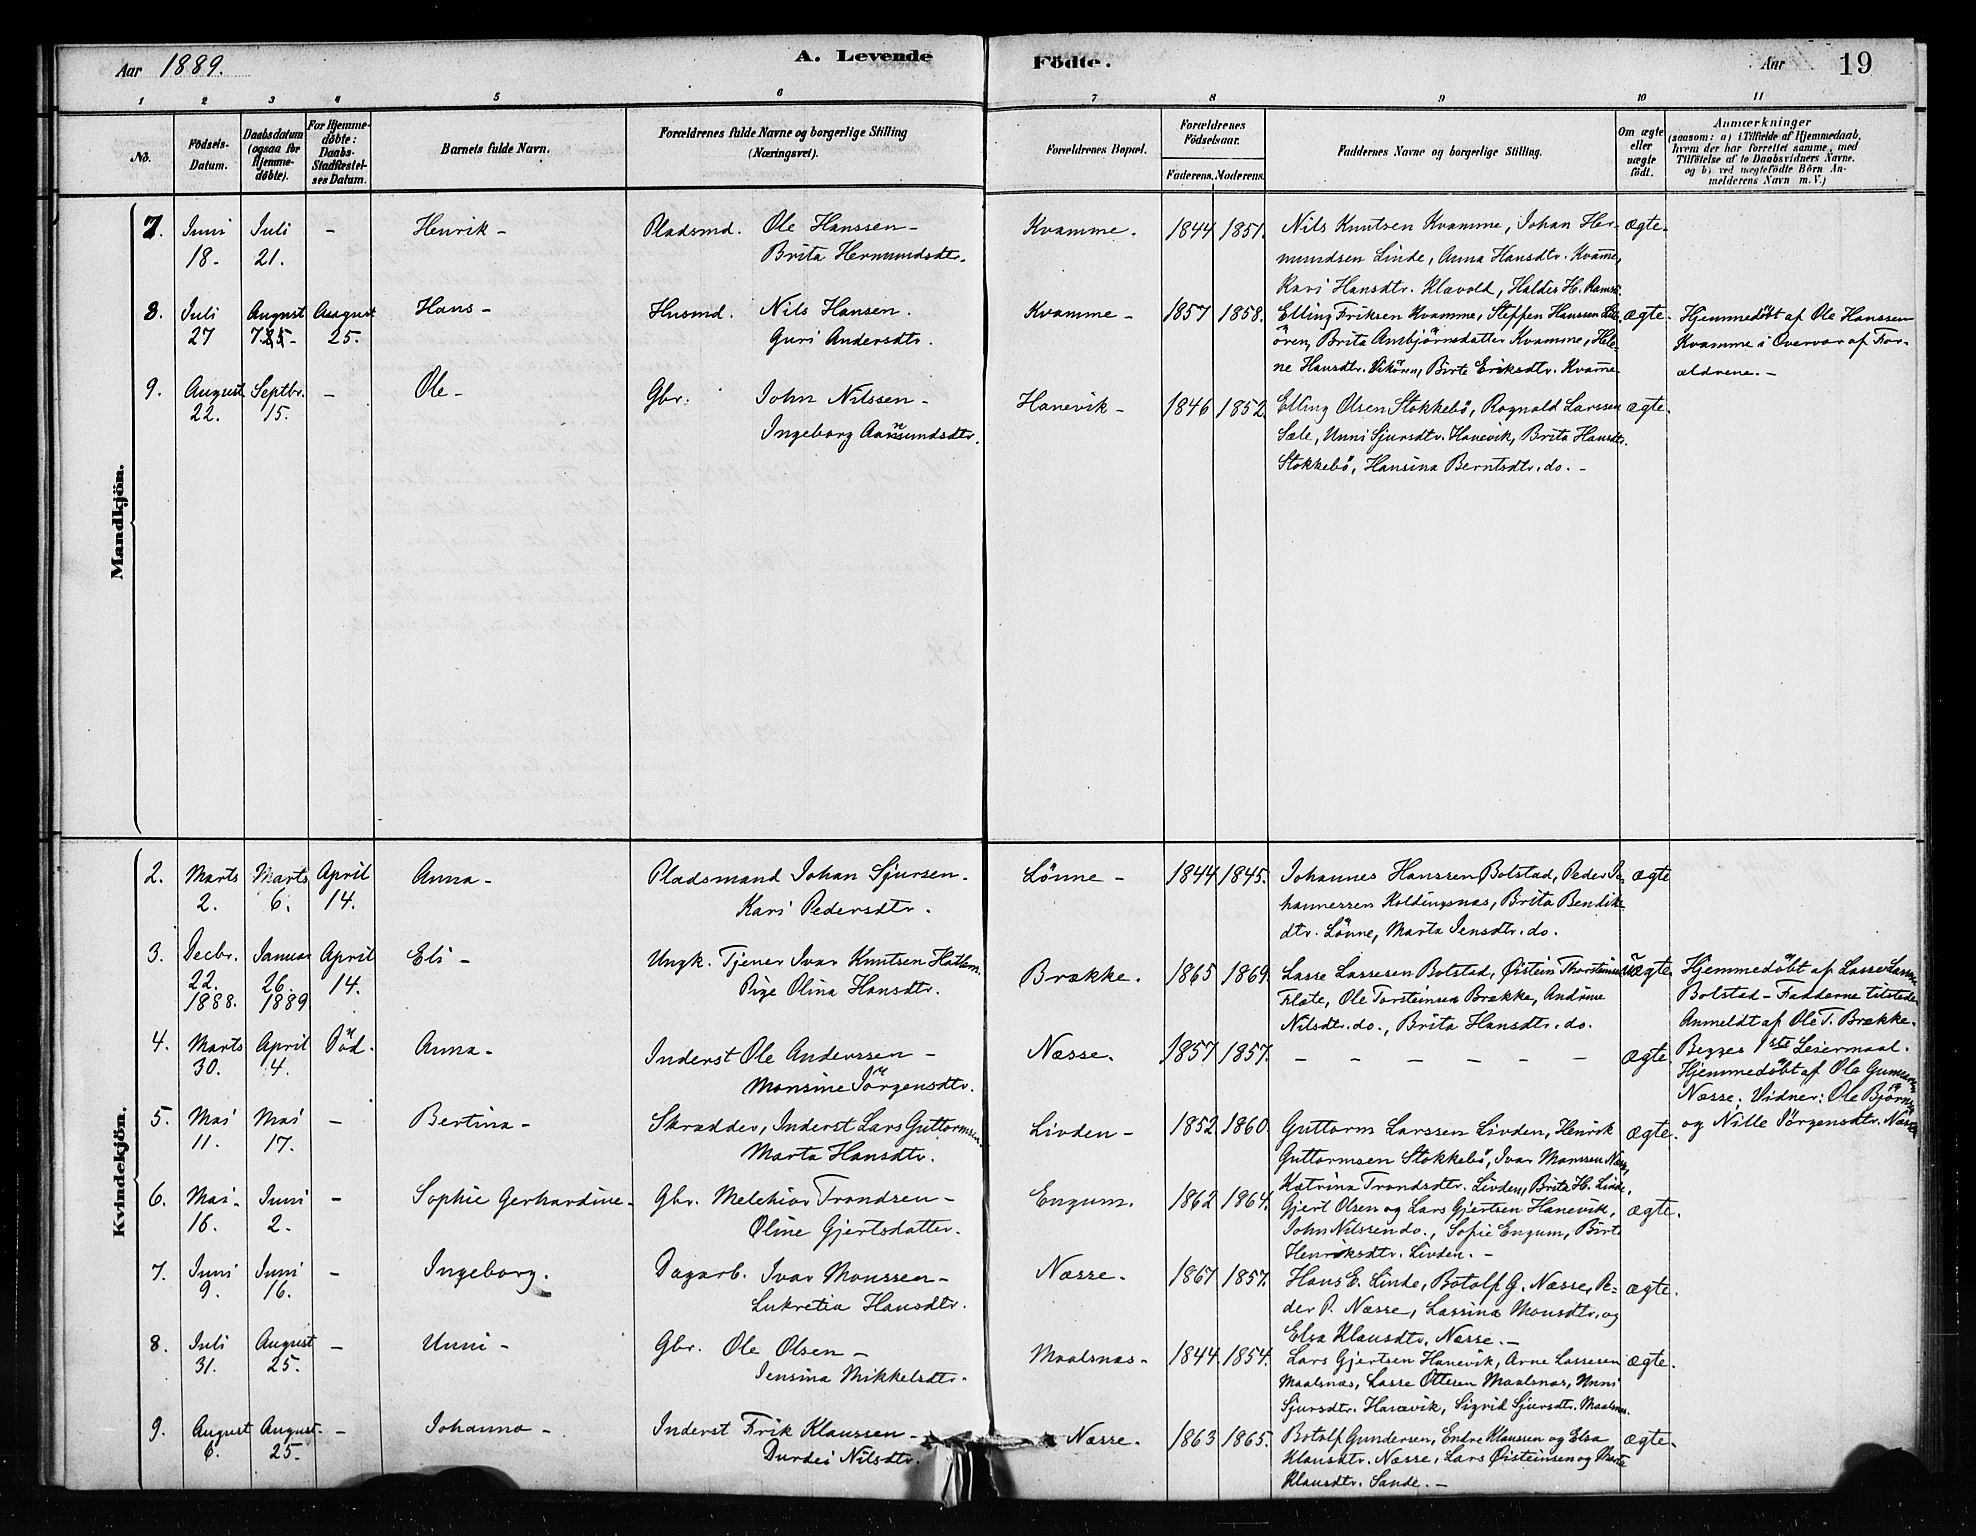 Aar 1889.
A. Levende
Födte.
Aar 19
1 2 3 4 5 6 7 8 9 10 11
No.
Födsels-
Datum.
Daabsdatum
(ogsaa for
Hjemme-
döbte).
For Hjemme-
döbte:
Daabs-
Stadfæstel-
ses Datum.
Barnets fulde Navn.
Forældrenes fulde Navne og borgerlige Stilling
(Næringsvei).
Forældrenes Bopæl.
Forældrenes
Födselsaar.
Faderens. Moderens.
Faddernes Navne og borgerlige Stilling.
Om ægte
eller
uægte
födt.
Anmærkninger
(saasom: a) i Tilfælde af Hjemmedaab,
hvem der har forrettet samme, med
Tilföielse af to Daabsvidners Navne,
og b) ved uægtefödte Börn An-
melderens Navn m. V.)
Mandkjön.
7. Juni Juli - Henrik - Pladsmd. Ole Hanssen - Kvamme. 1844 1851. Nils Knutsen Kvamme, Johan Her- ægte.
18. 21. Brita Hermundsdtr. mundsen Linde, Anna Hansdtr. Kvamme,
Kari Hansdtr. Klævold, Haldor H.
8. Juli August August Hans - Husmd. Nils Hansen. Kvamme - 1857 1858. Elling Eriksen Kvamme, Steffen Hanssen ægte - Hjemmedöbt af Ole Hanssen
27 25. Guri Andersdtr. ören, Brita Ambjörnsdatter Kvamme, Hele- Kvamme i Overvær af For-
ne Hansdtr. Vikören, Birte Eriksdtr. Kvamme ældrene. -
9. August Septbr. - Ole - Gbr. John Nilssen - Hanevik - 1846 1852. Elling Olsen Stokkebö, Rognald Larssen ægte.
22. 15. Ingeborg Aamundsdtr. Sæle, Unni Sjursdtr. Hanevik, Brita Hansdtr.
Stokkebö, Hansina Berntsdtr. do. -
Kvindekjön.
2. Marts Marts April Anna - Pladsmand Johan Sjursen - Lönne - 1844 1845. Johannes Hanssen Bolstad, Peder Jo- ægte
2. 6. 14. Kari Pedersdtr. hannessen Koldingsnæs, Brita Bendiks
dtr. Lönne, Marta Jensdtr. do.
3. Decbr. Januar April Eli - Ungk. Tjener Ivar Knutsen Hatlem. Brække. 1865 1869. Lasse Lassesen Bolstad, Öistein Thorsteinsen uægte. Hjemmedöbt af Lasse Lassesen
22. 26. 14. Pige Olina Hansdtr. Flate, Ole Torsteinsen Brække, Andrine Bolstad - Fadderne tilstede
1888. 1889 Nilsdtr. do., Brita Hansdtr. do. Anmeldt af Ole T. Brække.
Begges 1ste Leiermaal.
4. Marts April Död. Anna - Inderst Ole Anderssen - Næsse. 1857 1857. - - - - - - ægte Hjemmedöbt af Ole Gunnarsen
30. 4. Monsine Jörgensdtr. Næsse. Vidner: Ole Björnsen
og Nille Jörgensdtr. Næsse
5. Mai Mai - Bertina - Skrædder, Inderst Lars Guttormsen Livden - 1852 1860. Guttorm Larssen Livden, Henrik ægte.
11. 17. Marta Hansdtr. Guttormsen Stokkebö, Ivar Monssen Næsse,
Katrina Trondsdtr. Livden, Brita H. Linde.
6. Mai - Juni - Sophie Gerhardine - Gbr. Melchior Trondsen - Engum. 1862 1864. Gjert Olsen og Lars Gjertsen Hanevik, ægte.
16. 2. Oline Gjertsdatter. John Nilssen do., Sofie Engum, Birte
Henriksdtr. Livden. -
7. Juni Juni - Ingeborg. Dagarb. Ivar Monssen - Næsse. 1867 1857. Hans E. Linde, Botolf G. Næsse, Pe- ægte.
9. 16. Lukretia Hansdtr. der P. Næsse, Lassina Monsdtr. og
Elsa Klausdtr. Næsse. -
8. Juli August - Unni - Gbr. Ole Olsen - Maalsnæs - 1844 1854. Lars Gjertsen Hanevik, Arne Lassesen ægte.
31. 25. Jensina Mikkelsdtr. Maalsnæs, Lasse Ottesen Maalsnæs, Unni
Sjursdtr. Hanevik, Sigrid Sjursdtr. Maalsnæs.
9. August August - Johanna - Inderst Erik Klaussen - Næsse. 1863 1865. Botolf Gundersen, Endre Klaussen og Elsa ægte.
6. 25. Durdei Nilsdtr. Klausdtr. Næsse, Lars Öisteinsen og Marta
Klausdtr. Sande. -